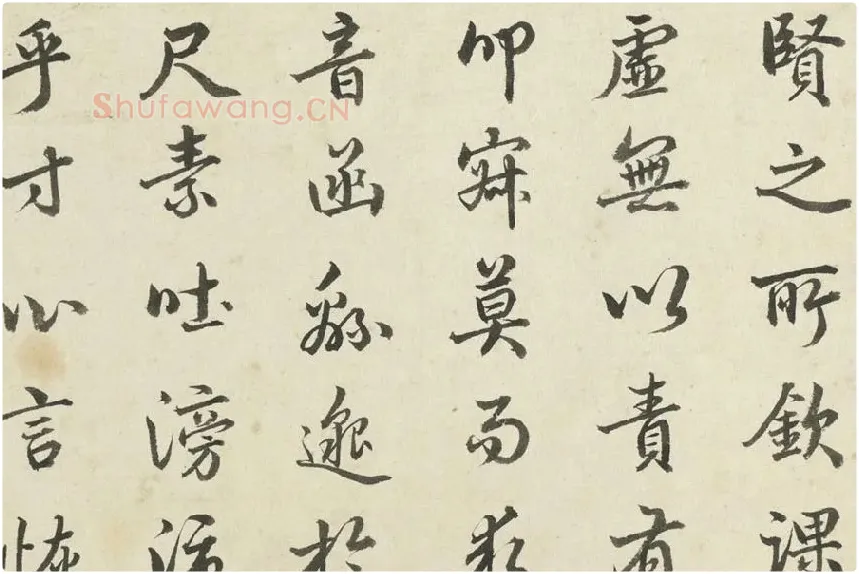 賢之所欽課
虛無以責有
叩寂莫而求
音函緜邈於
尺素吐滂沛
乎寸心言恢
Shufawang.CN